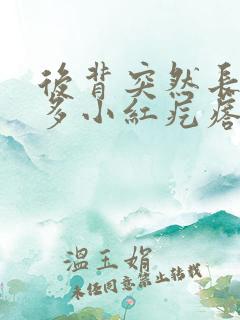 後背突然長
多小紅疙瘩
溫玉娟
未經同意禁止轉載